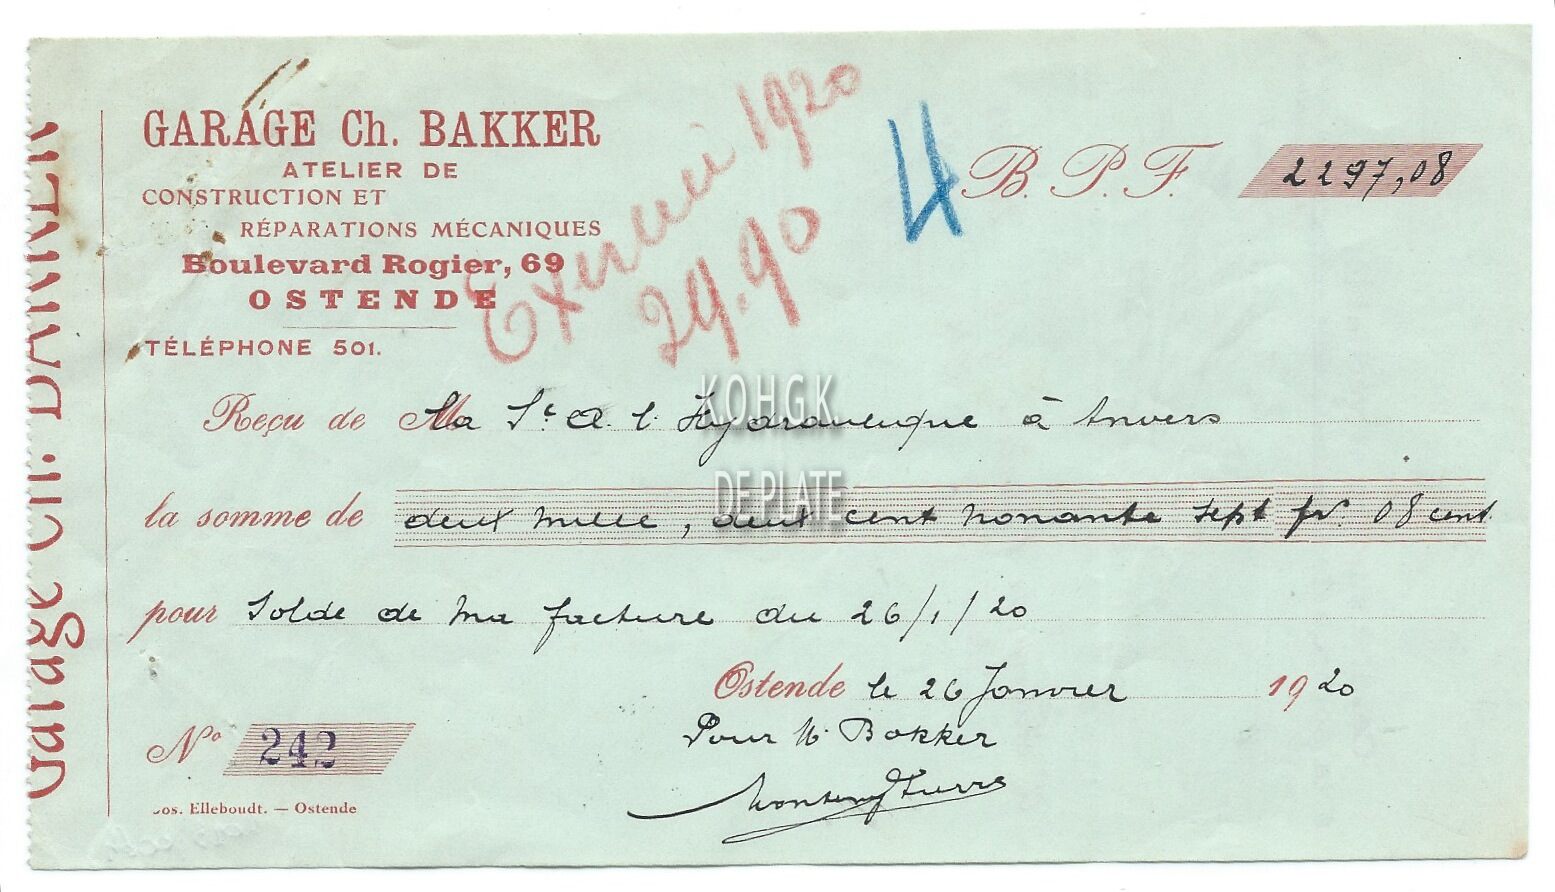 GARAGE Ch. BAKKER
ATELIER DE
CONSTRUCTION ET
RÉPARATIONS MÉCANIQUES
Boulevard Rogier, 69
OSTENDE
TÉLÉPHONE 501.
Exercice 1920
29.90
4
B. P. F. 2297,08
Reçu de M la Sté A. l'Hydraulique à Anvers
KOHGK
DE PLATE
la somme de deux mille, deux cent nonante sept frs. 08 cent.
pour Solde de ma facture du 26/1/20
Ostende le 26 Janvier 1920
Pour M. Bakker
No 242
Jos. Elleboudt. — Ostende
Garage Ch. BAKKER